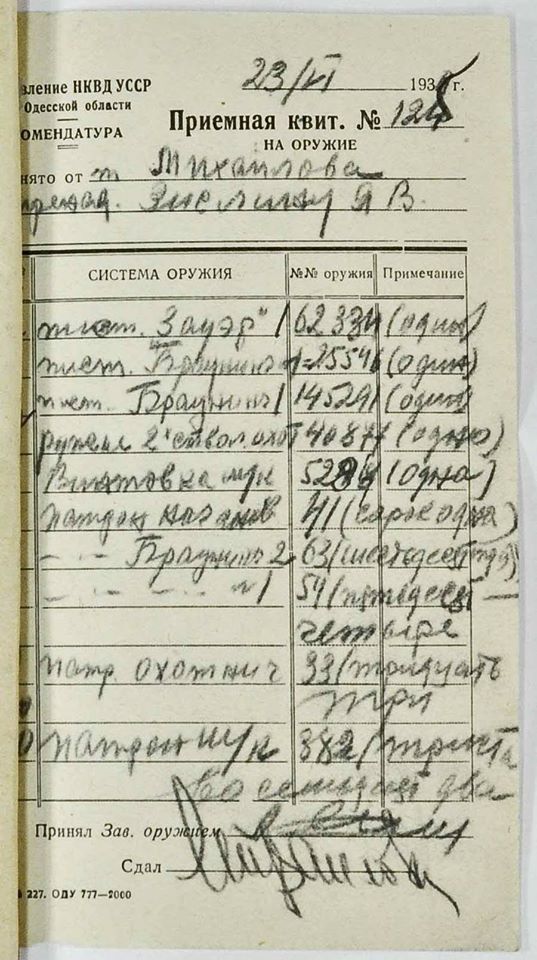 вление НКВД УССР
Одесской области
ОМЕНДАТУРА
23/VI 1938 г.
Приемная квит. № 124
НА ОРУЖИЕ
нято от т Михайлова
Я В.
СИСТЕМА ОРУЖИЯ №№ оружия Примечание
пист. Зауэр" 1 62334 (один)
пист. Браунинг 1-25541 (один)
пист. Браунинг 1 14529 (один)
ружье 2х ствол. охот 40874 (одно)
Винтовка м/к (одна)
патрон наганов 41 (сорок одна)
- - - Браунинг 2 63 (шестьдесят три)
- - - - № 1 54 (пятьдесят —
четыре
патр. охотнич 33 (тридцать
три
патрон м/к 382 (триста
восемьдесят два
Принял Зав. оружием
Сдал
227. ОДУ 777—2000